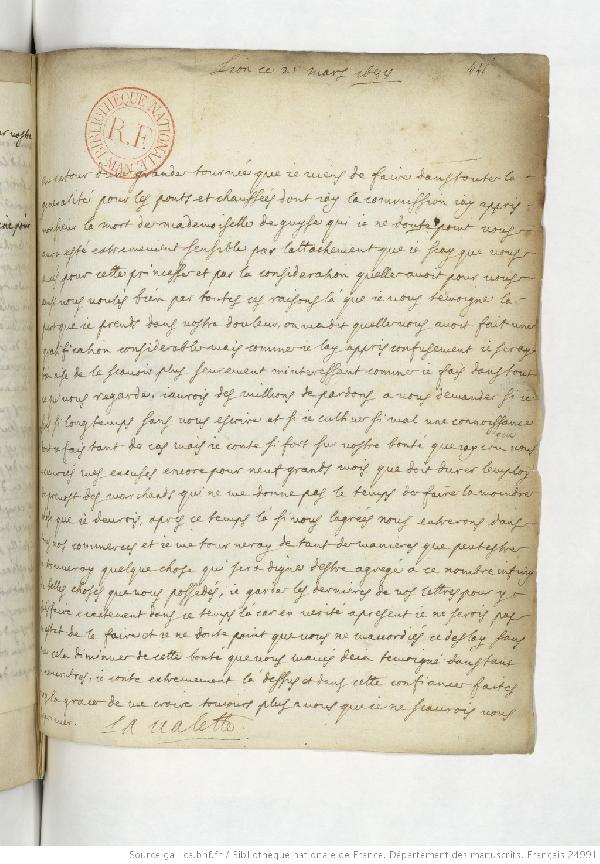 Lion ce 21 mars 1688
BIBLIOTHEQUE NATIONALE
R.F.
MAN
retour grande tournée que ie viens de faire dans toutte la
generalité pour les ponts et chaussées dont iay la commission iay appris
la mort de mademoiselle de guyse qui ie ne doute point vous
esté extremement sensible par lattachement que ie scay que vous
pour cette princesse et par la consideration quelle avoit pour vous
vous voulés bien par toutes ces raisons là que ie vous temoigne la
part que ie prends dans vostre douleur, on madit quelle vous avoit fait une
gratification considerable mais comme ie lay appris confusement ie seray
aise de le scavoir plus seurement minteressant comme ie fais dans tout
ce qui vous regarde, iaurois des millions de pardons a vous demander si ie
si long temps sans vous escrire et si ie cultive si mal une connoissance
dont ie fais tant de cas mais ie conte si fort sur vostre bonté que iay creu que vous
mes excuses encore pour neuf grands mois que doit durer lemploy
de prevost des marchands qui ne me donne pas le temps de faire la moindre
chose que ie devrois, apres ce temps là si vous lagreés nous entrerons dans
nos commerces et ie me tourneray de tant de manieres que peutestre
quelque chose qui sera digne destre agregé a ce nombre infiny
de belles choses que vous possedés, ie garde les dernieres de vos lettres pour y
exactement dans ce temps là car en verité apresent ie ne serois pas
estat de le faire et ie ne doute point que vous ne maccordiés ce deslay sans
cela diminuer de cette bonté que vous mavés deia temoigné dans tant
ie conte extremement la dessus et dans cette confiance faites
la grace de me croire tousiours plus a vous que ie ne scaurois vous
La valette
Source gallica.bnf.fr / Bibliothèque nationale de France. Département des manuscrits. Français 24991